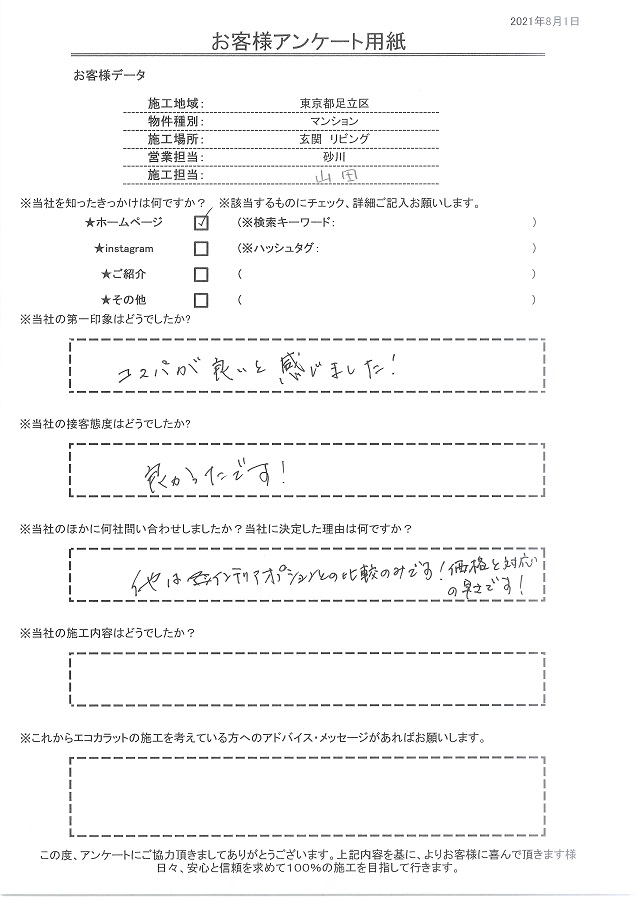 2021年8月1日
お客様アンケート用紙
お客様データ
施工地域： 東京都足立区
物件種別： マンション
施工場所： 玄関 リビング
営業担当： 砂川
施工担当： 山田
※当社を知ったきっかけは何ですか？ ※該当するものにチェック、詳細ご記入お願いします。
★ホームページ ☑ （※検索キーワード： ）
★instagram □ （※ハッシュタグ： ）
★ご紹介 □ （ ）
★その他 □ （ ）
※当社の第一印象はどうでしたか?
コスパが良いと感じました！
※当社の接客態度はどうでしたか?
良かったです！
※当社のほかに何社問い合わせしましたか？当社に決定した理由は何ですか？
他はインテリアオプションとの比較のみです！価格と対応
の早さです！
※当社の施工内容はどうでしたか？
※これからエコカラットの施工を考えている方へのアドバイス・メッセージがあればお願いします。
この度、アンケートにご協力頂きましてありがとうございます。上記内容を基に、よりお客様に喜んで頂きます様
日々、安心と信頼を求めて100%の施工を目指して行きます。